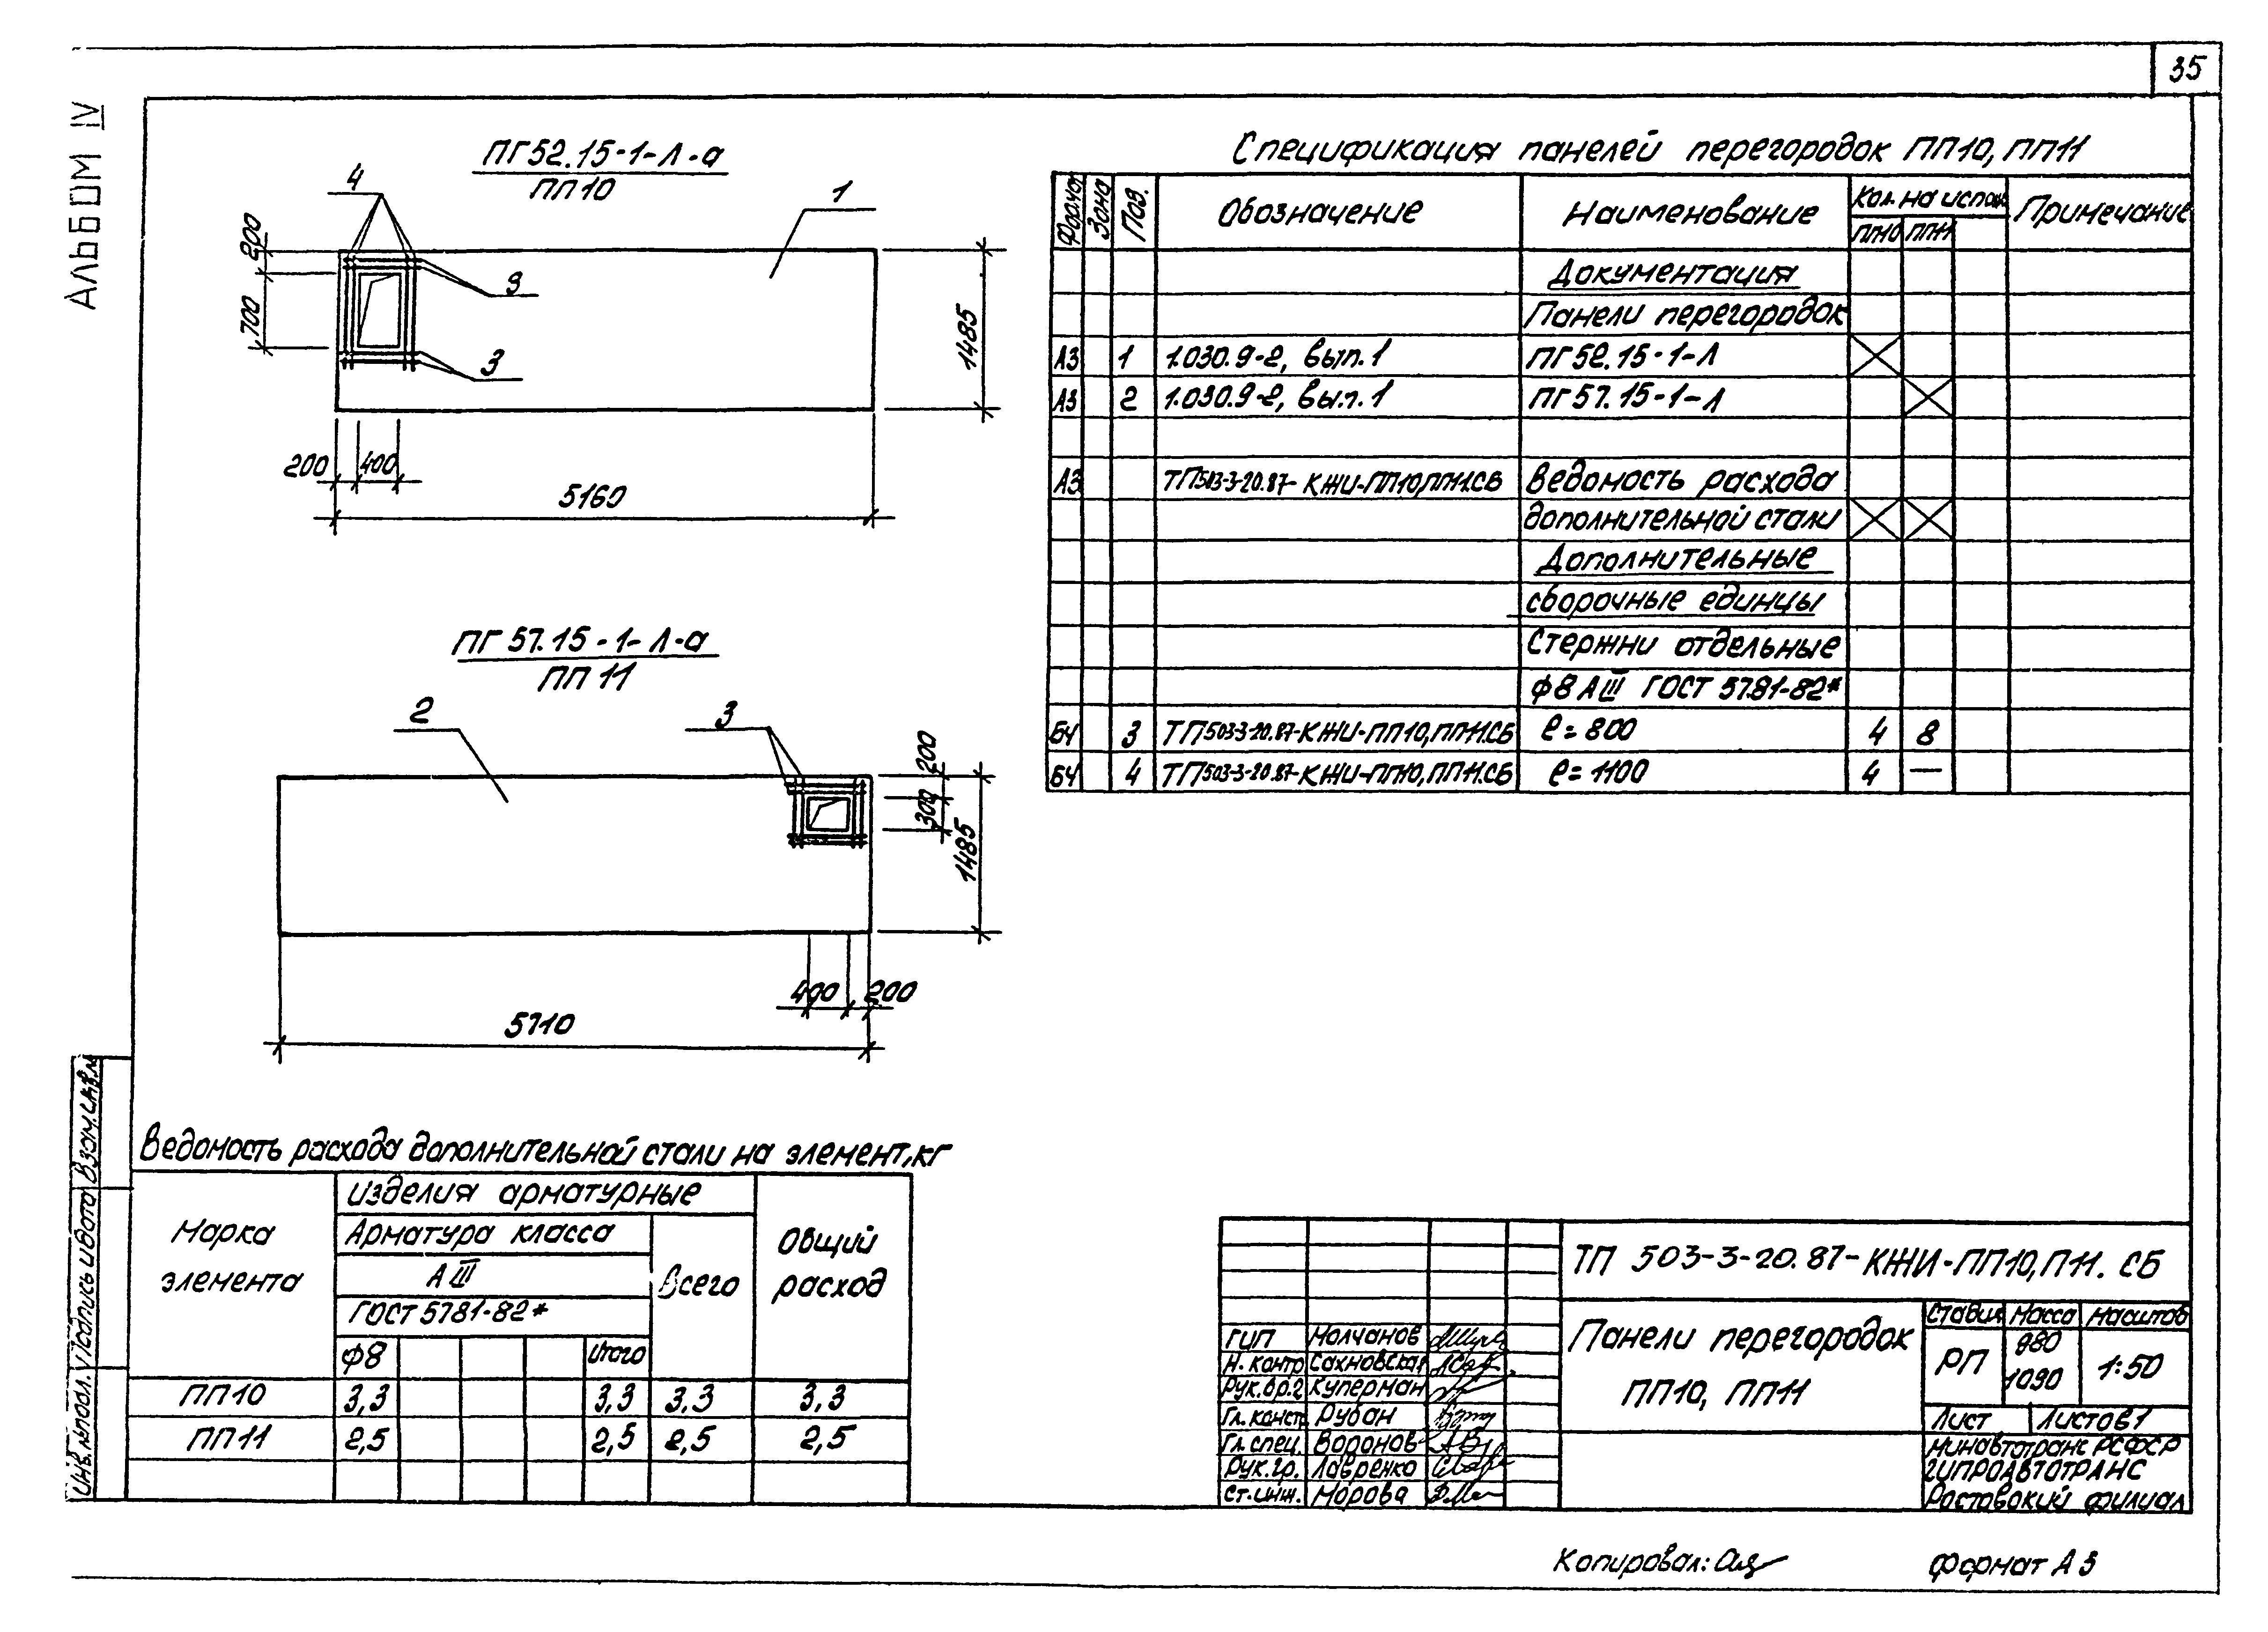 35
АЛЬБОМ IV
ПГ52.15-1-Л-а
ПП10
4
1
3
3
200
700
1485
200
400
5160
ПГ 57.15-1-Л-а
ПП 11
2
3
200
300
1485
400
200
5710
Спецификация панелей перегородок ПП10, ПП11
Формат Зона Поз. Обозначение Наименование Кол. на испол. Примечание
ПП10 ПП11
Документация
Панели перегородок
А3 1 1.030.9-2, вып.1 ПГ52.15-1-Л
А3 2 1.030.9-2, вып.1 ПГ57.15-1-Л
А3 ТП503-3-20.87-КЖИ-ПП10,ПП11.СБ Ведомость расхода
дополнительной стали
Дополнительные
сборочные единцы
Стержни отдельные
ф8 АIII ГОСТ 5781-82*
БЧ 3 ТП503-3-20.87-КЖИ-ПП10,ПП11.СБ ℓ=800 4 8
БЧ 4 ТП503-3-20.87-КЖИ-ПП10,ПП11.СБ ℓ=1100 4 —
Ведомость расхода дополнительной стали на элемент,кг
Марка элемента
Изделия арматурные
Арматура класса
АIII
ГОСТ 5781-82*
ф8 Итого
Всего
Общий расход
ПП10 3,3 3,3 3,3 3,3
ПП11 2,5 2,5 2,5 2,5
Инв.№подл. Подпись и дата Взам.инв.№
ТП 503-3-20.87-КЖИ-ПП10,П11. СБ
Панели перегородок
ПП10, ПП11
Стадия Масса Масштаб
РП 980 1:50
1090
Лист Листов 1
Минавтотранс РСФСР
ГИПРОАВТОТРАНС
Ростовский филиал
ГИП Молчанов
Н. контр Сахновская
Рук.бр.2 Куперман
Гл. конст. Рубан
Гл. спец. Воронов
Рук. гр. Лавренко
Ст. инж. Морова
Копировал:
Формат А3